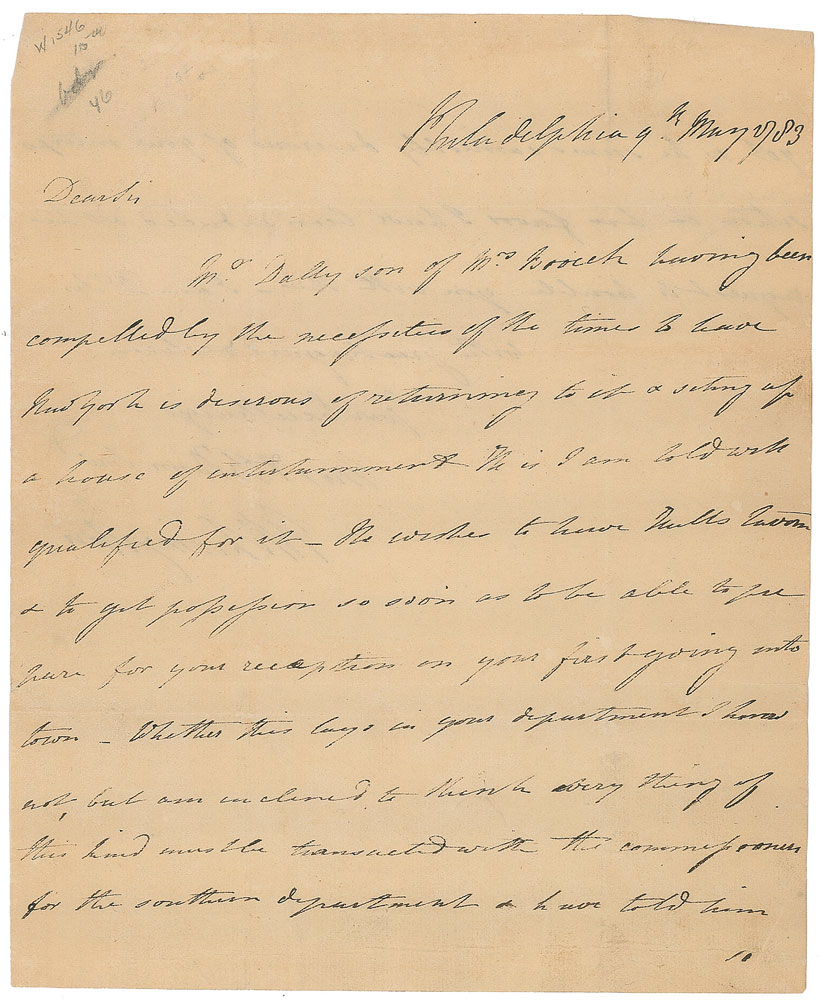 W 1546
10 00
46
Philadelphia 9th May 1783
Dear Sir
Mr Dally son of Mrs Brock having been
compelled by the necessities of the times to leave
New York is desirous of returning to it & seting up
a house of entertainment He is I am told well
qualified for it – He wishes to have Hulls Tavern
& to get possession so soon as to be able to pre
pare for your reception on your first going into
town – Whether this lays in your department I know
not, but am inclined to think every thing of
this kind must be transacted with the commissioners
for the southern department & have told him
so